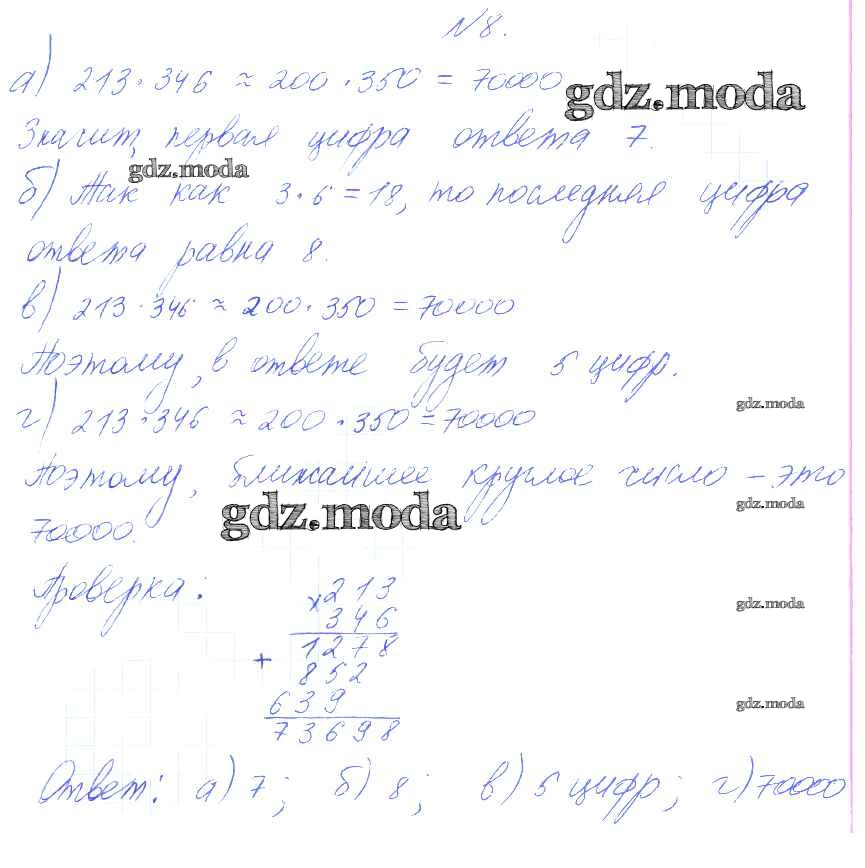 №8.
а) 213·346 ≈ 200·350 = 70000
gdz.moda
Значит, первая цифра ответа 7.
gdz.moda
б) Так как 3·6 = 18, то последняя цифра
ответа равна 8.
в) 213·346 ≈ 200·350 = 70000
Поэтому, в ответе будет 5 цифр.
gdz.moda
г) 213·346 ≈ 200·350 = 70000
Поэтому, ближайшее круглое число – это
gdz.moda
70000.
gdz.moda
Проверка:
× 213
346
gdz.moda
+ 1278
852
639
gdz.moda
73698
Ответ: а) 7; б) 8; в) 5 цифр; г) 70000